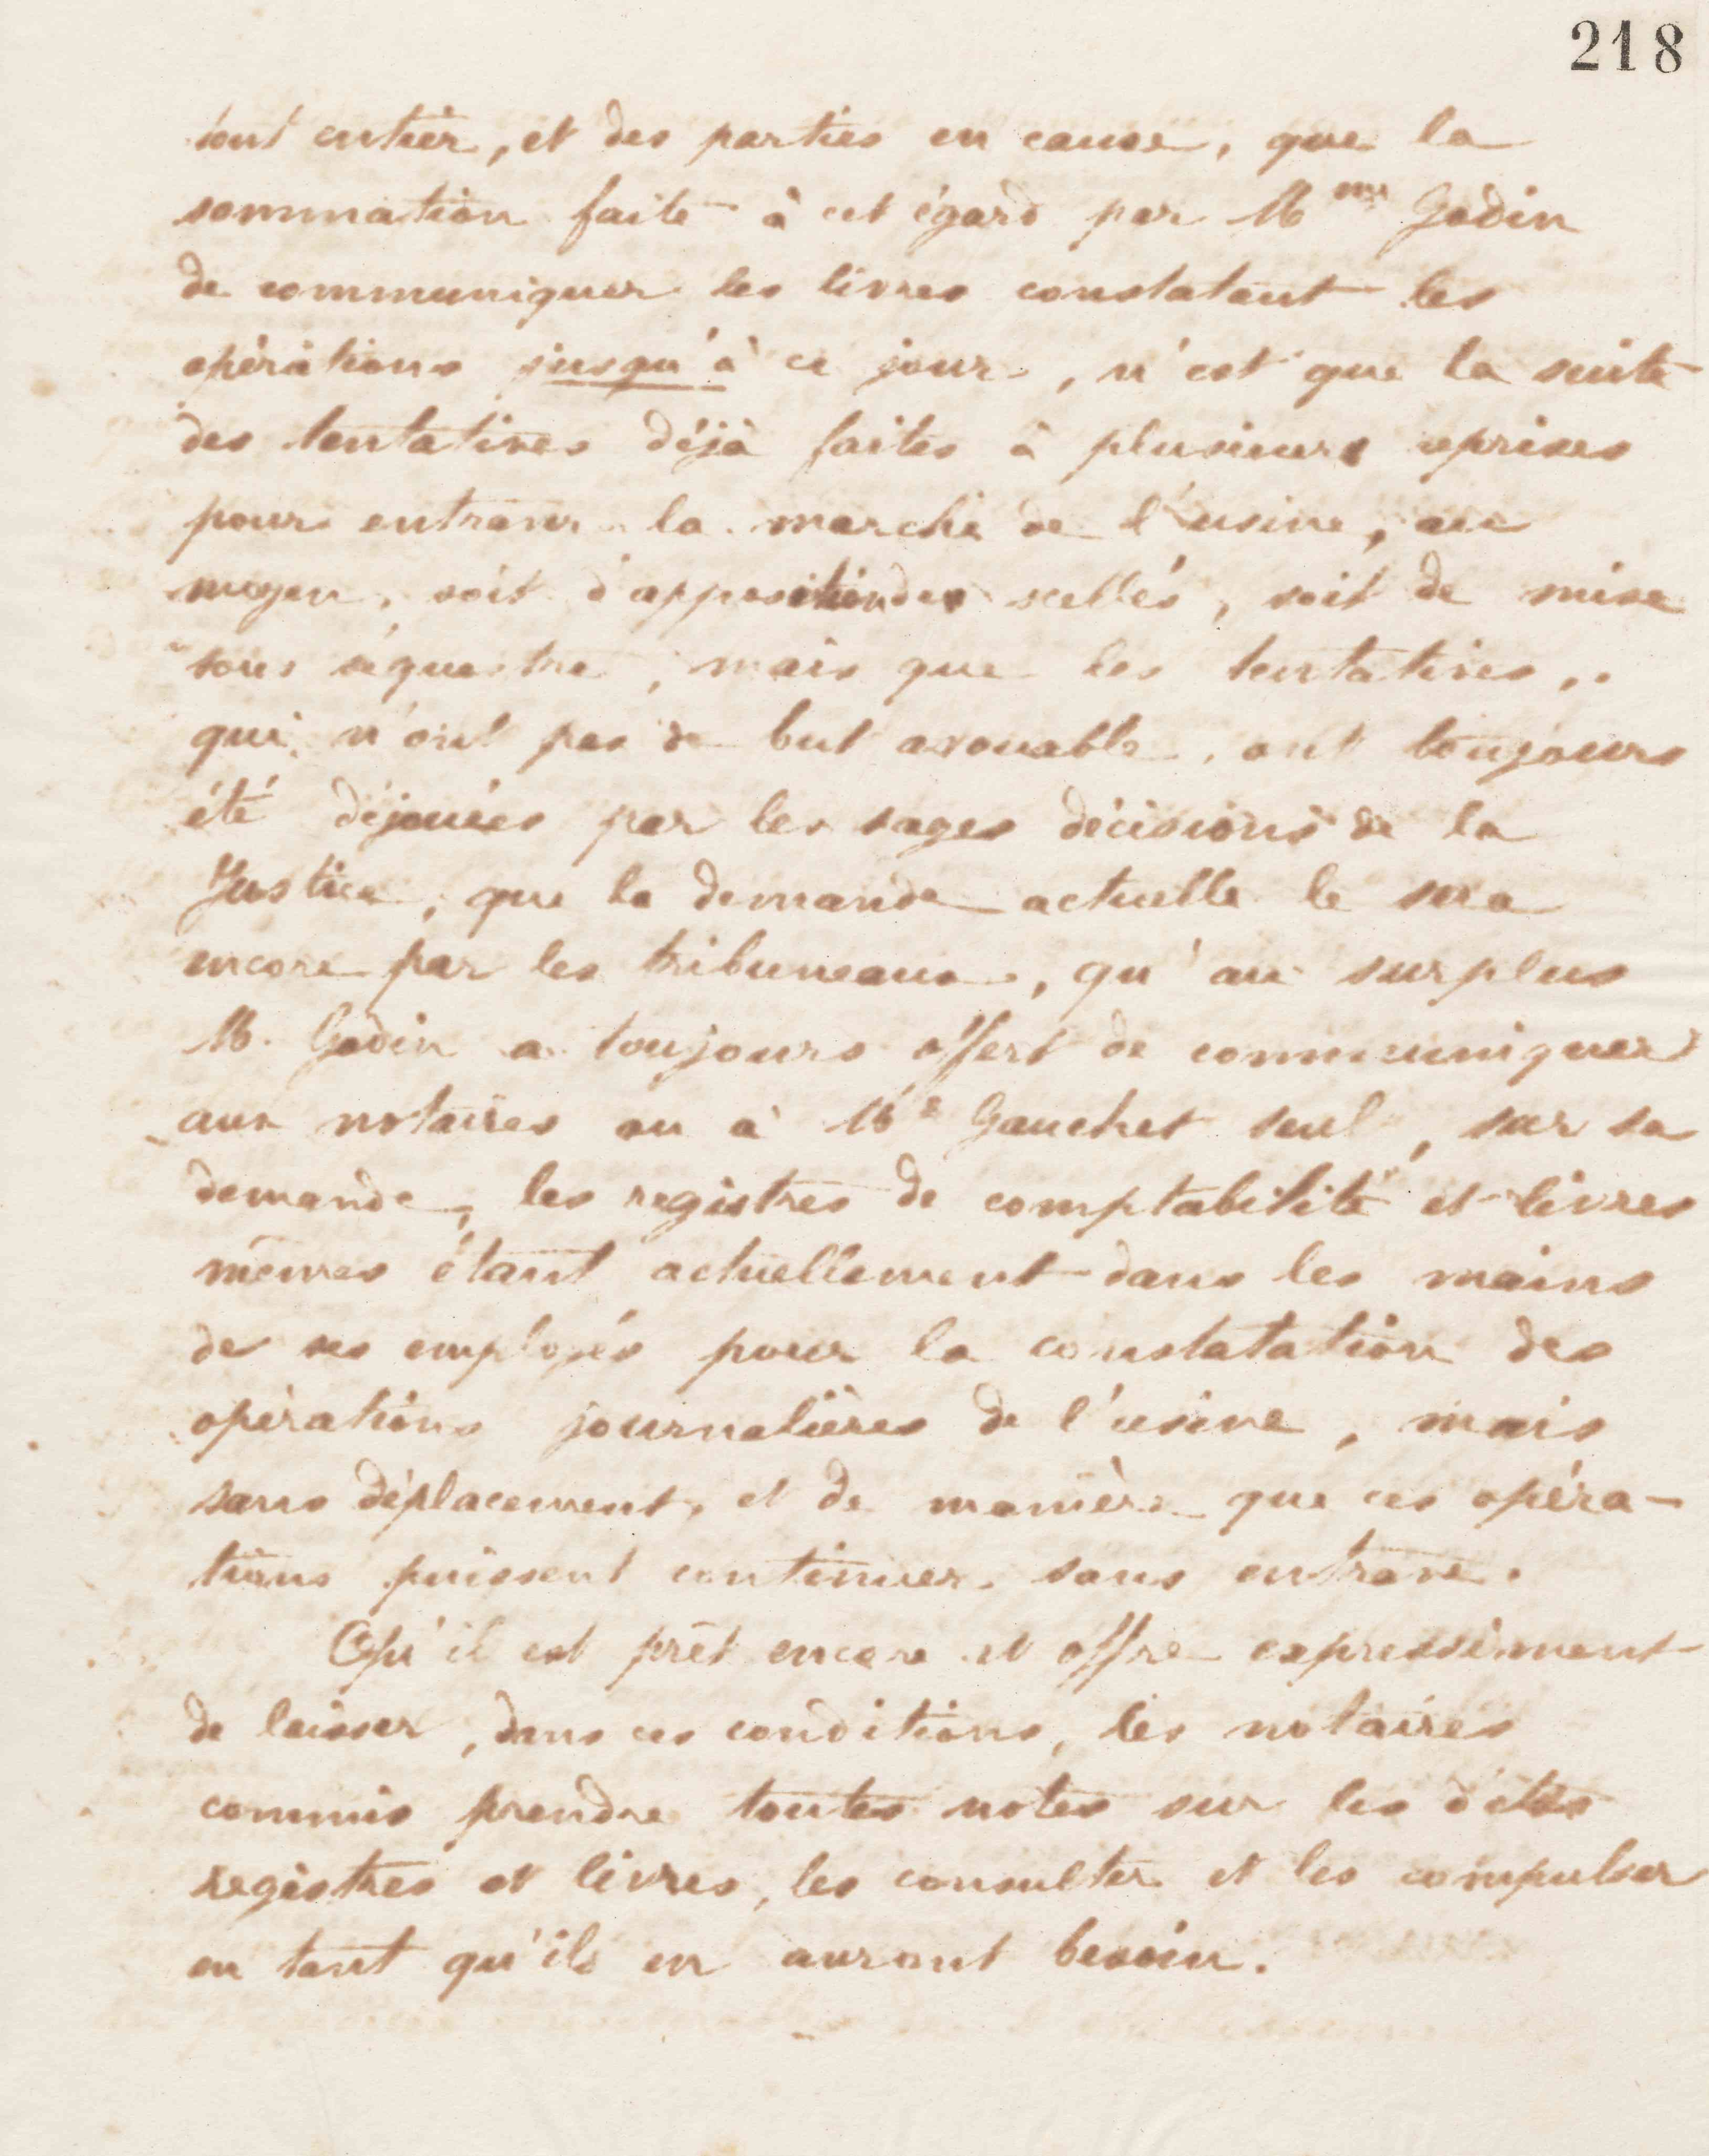 218
tout entier, et des parties en cause, que la
sommation faite à cet égard par Mme Godin
de communiquer les livres constatant les
opérations jusqu'à ce jour, n'est que la suite
des tentatives déjà faites à plusieurs reprises
pour entraver la marche de l'usine, au
moyen, soit d'apposition des scellés, soit de mise
sous séquestre, mais que les tentatives,
qui n'ont pas de but avouable, ont toujours
été déjouées par les sages décisions de la
Justice, que la demande actuelle le sera
encore par les tribuneaux, qu'au surplus
M. Godin a toujours offert de communiquer
aux notaires ou à Me Gauchet seul, sur sa
demande, les registres de comptabilité et livres
mêmes étant actuellement dans les mains
de ses employés pour la constatation des
opérations journalières de l'usine, mais
sans déplacement, et de manière que ces opéra-
tions puissent continuer sans entrave.
Qu'il est prêt encore et offre expressément
de laisser, dans ces conditions, les notaires
commis prendre toutes notes sur les dits
registres et livres, les consulter et les compulser
en tant qu'ils en auront besoin.